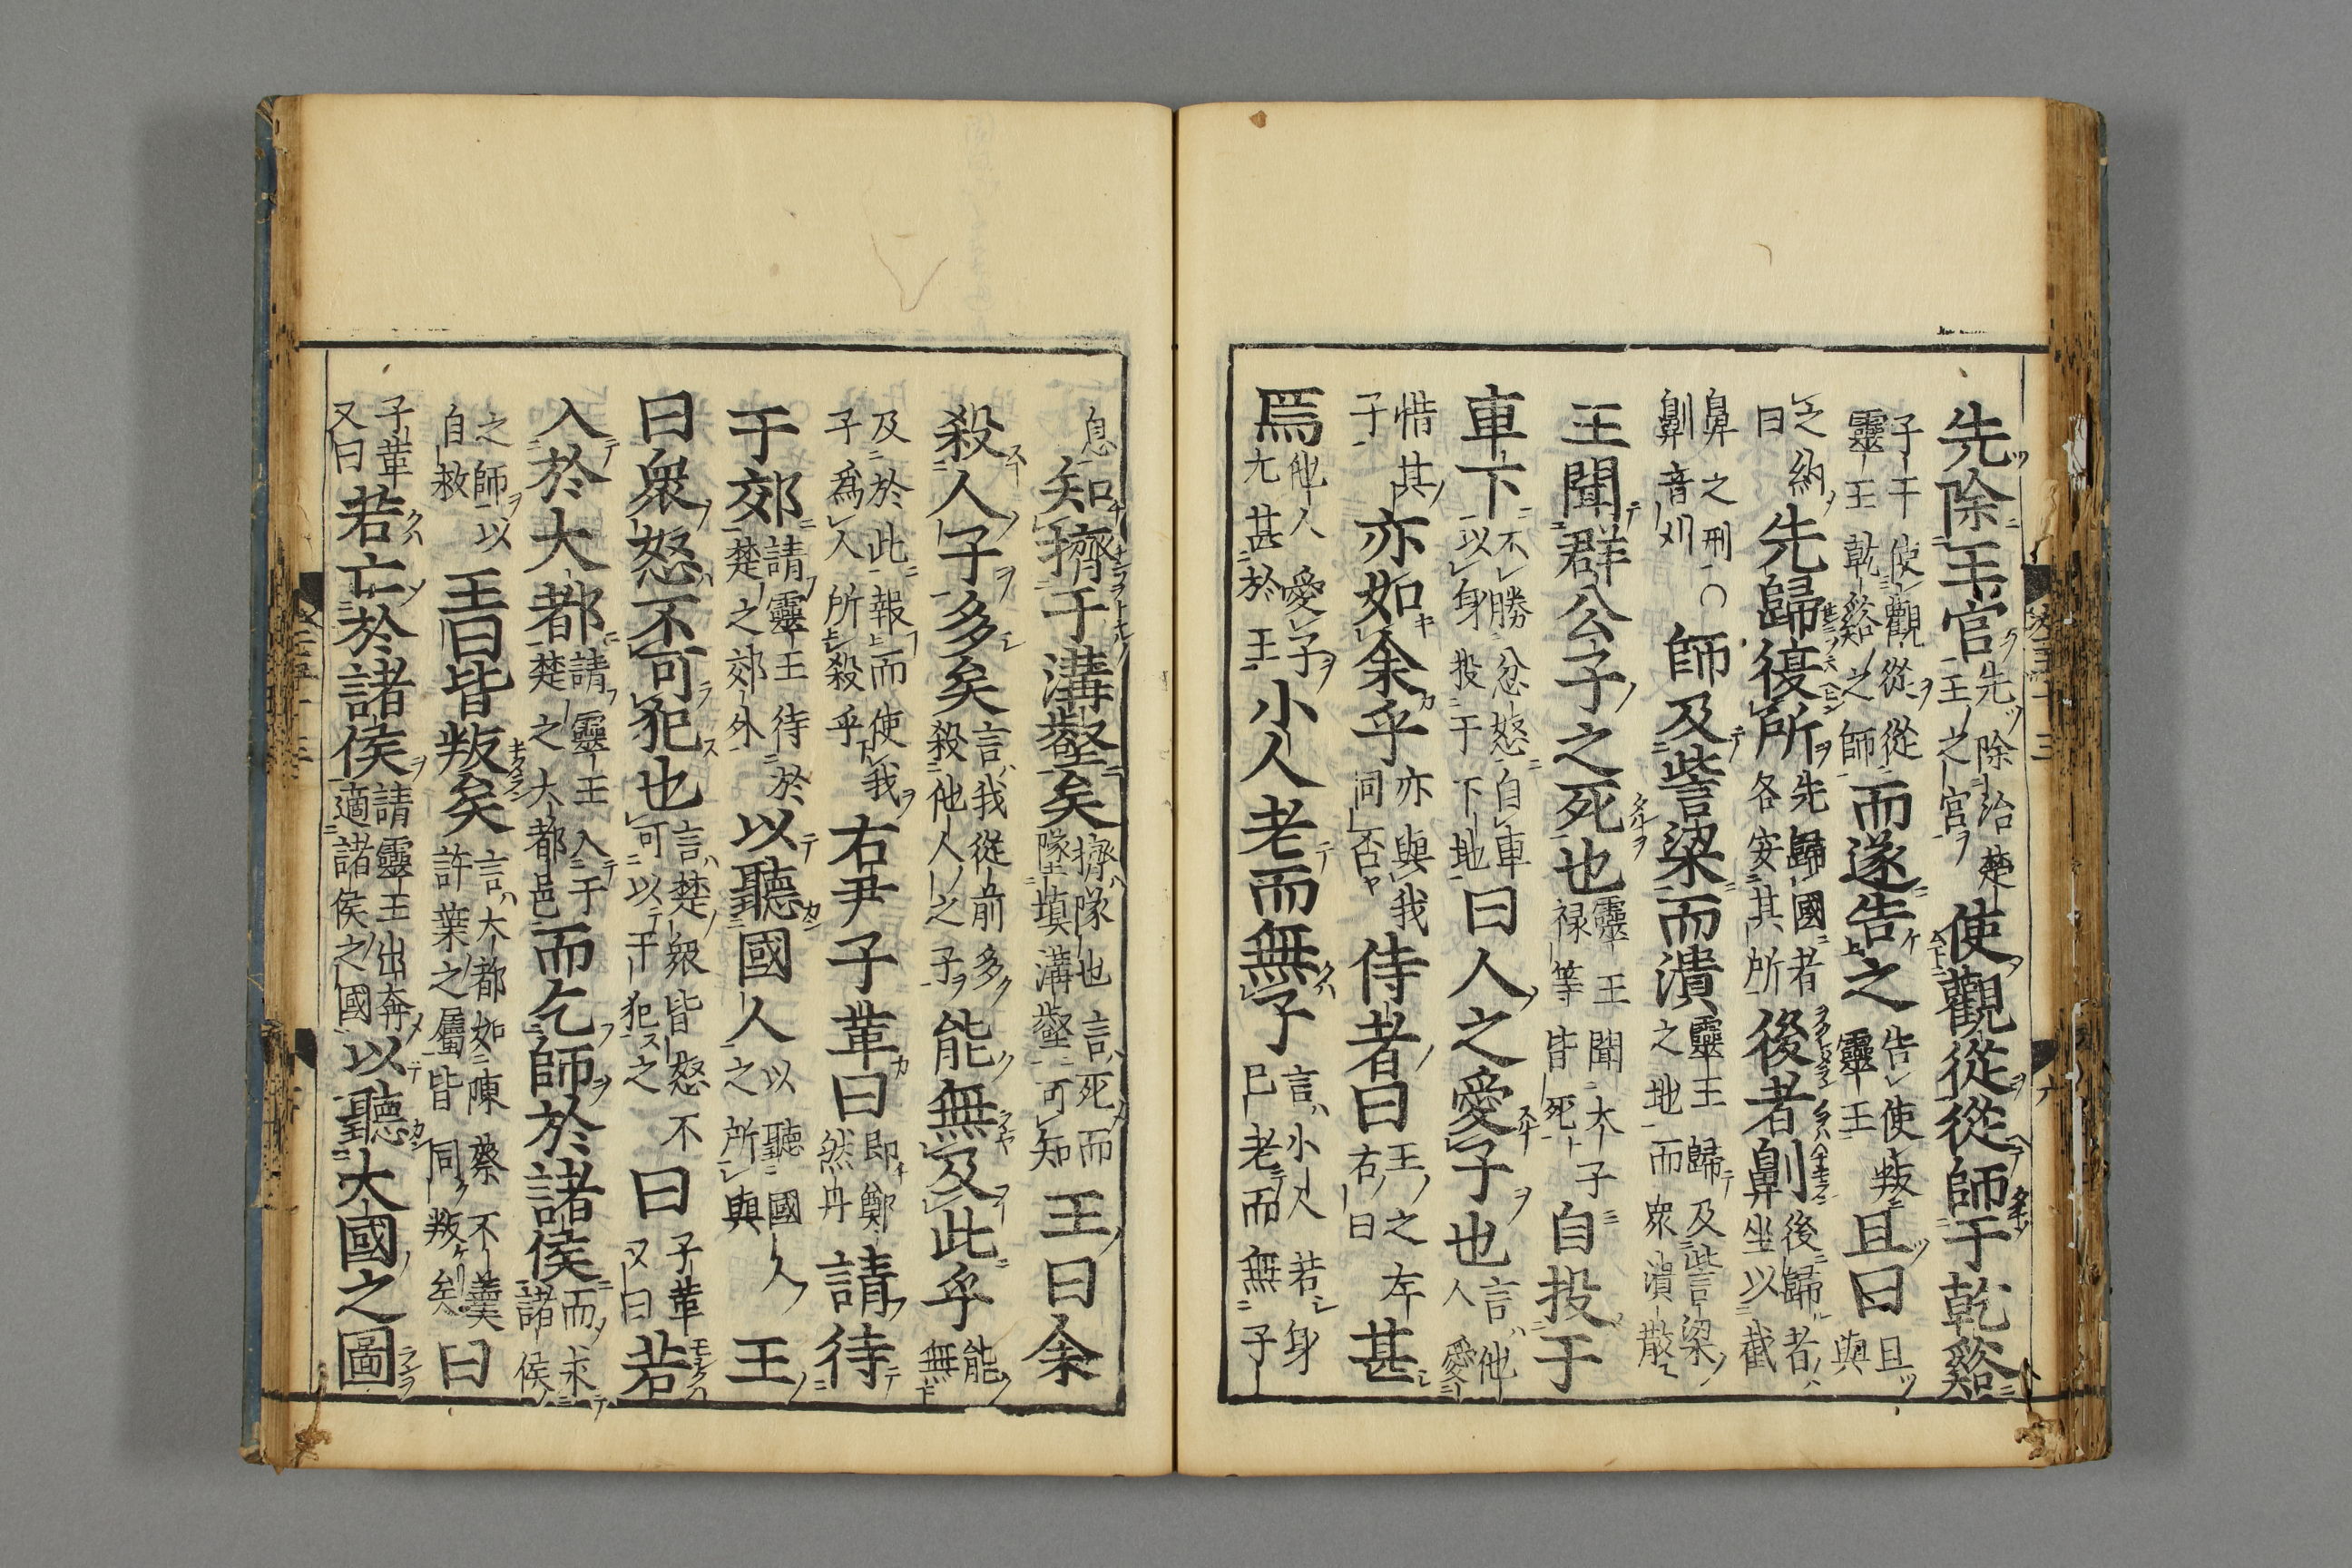 先除王宮先除治楚王之宮使觀從從師于乾谿
子干使觀從從靈王乾谿之師而遂告之告使叛靈王且曰且與
之約曰先歸復所先歸國者各安其所後者劓後歸者坐以截
鼻之刑○劓音刈師及訾梁而潰靈王歸及訾梁之地而衆潰散
王聞群公子之死也靈王聞太子祿等皆死自投于
車下不勝忿怒自車以身投于下地曰人之愛子也言他人愛
惜其子亦如余乎亦與我同否侍者曰王之左右曰甚
焉他人愛子尤甚於王小人老而無子言小人若身已老而無子
息知擠于溝壑矣擠隊也言死而墜填溝壑可知王曰余
殺人子多矣言我從前多殺他人之子能無及此乎能無
及於此報而使我子為人所殺乎右尹子革曰即鄭然丹請待
于郊請靈王待於楚之郊外以聽國人以聽國人之所與王
曰衆怒不可犯也言楚衆皆怒不可以干犯之曰子革又曰若
入於大都請靈王入于楚之大都邑而乞師於諸侯而求諸侯
之師以自救王曰皆叛矣言大都如陳蔡不羹許葉之屬皆同叛矣曰
子革又曰若亡於諸侯請靈王出奔適諸侯之國以聽大國之圖